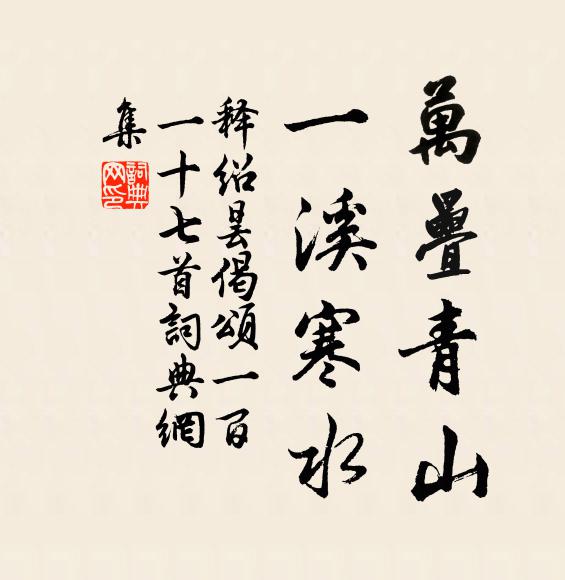 萬疊青山
一溪寒水
释紹曇偈頌一百
一十七首詞典網
集
詞典
网印